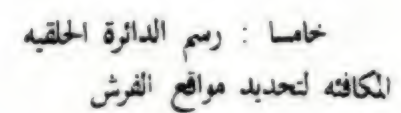 خامسا : رسم الدائرة الحلقيه
المكافئه لتحديد مواقع الفرش